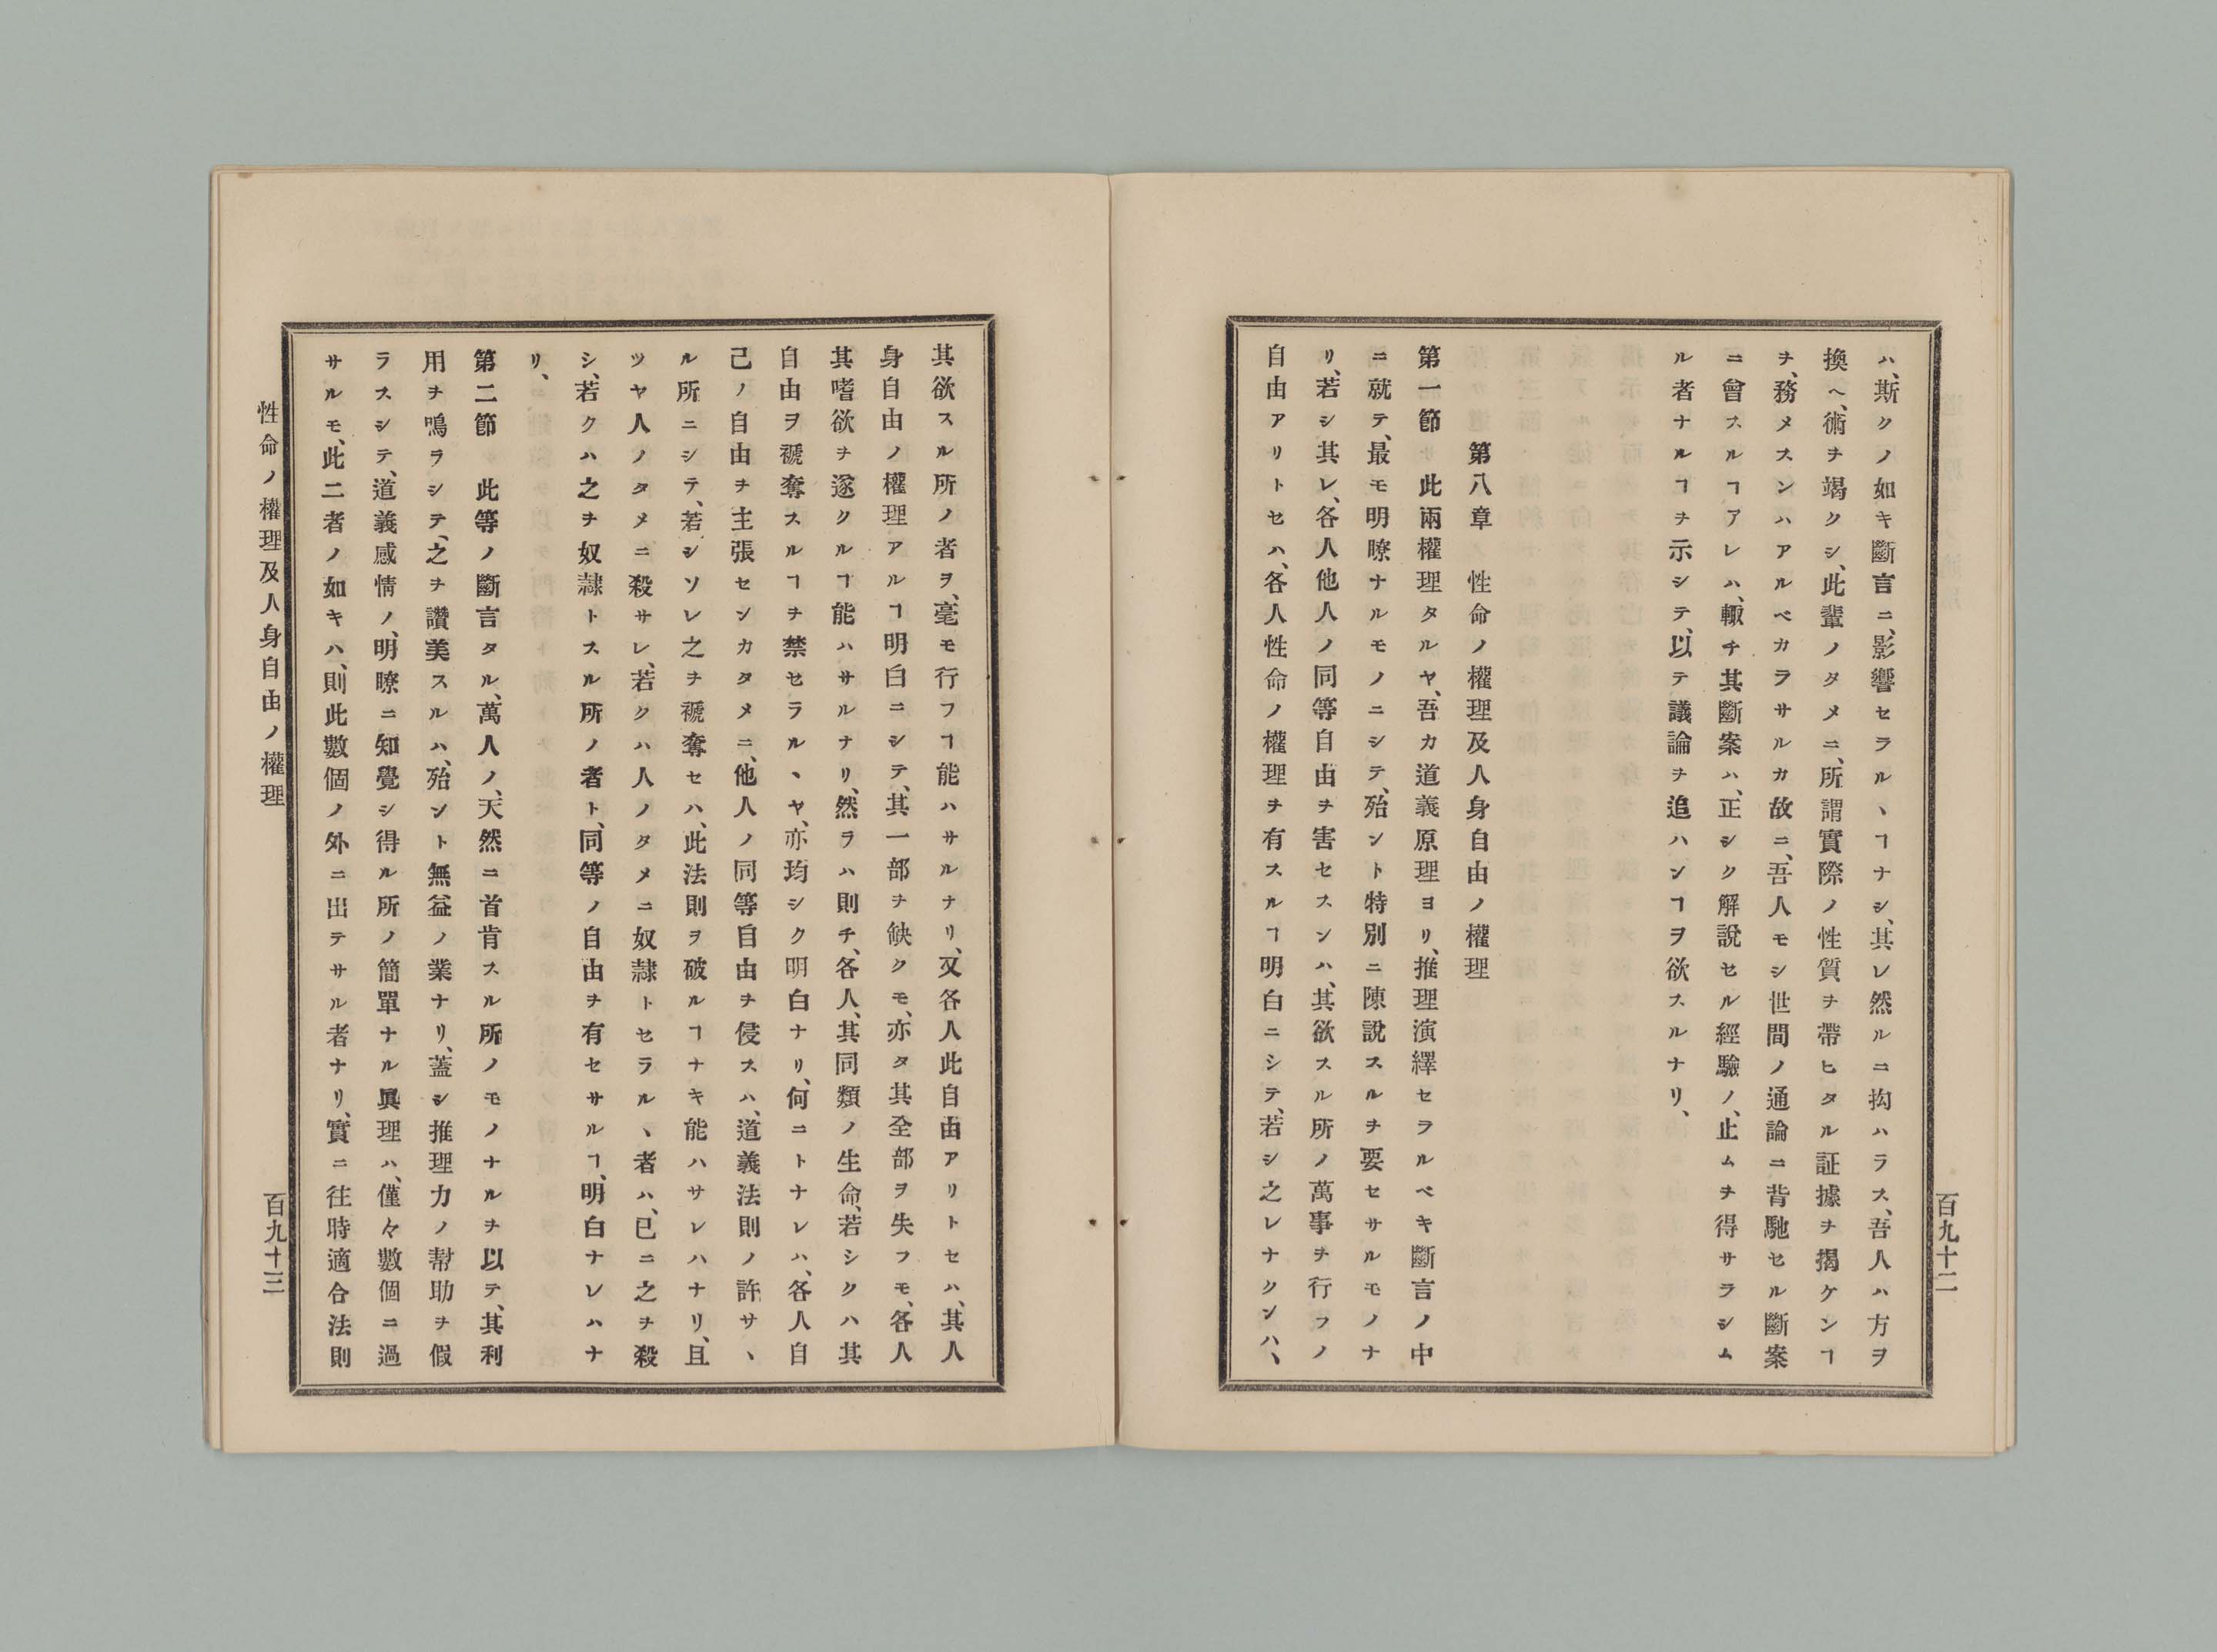 ハ、斯クノ如キ斷言ニ、影響セラルヽヿナシ、其レ然ルニ抅ハラス、吾人ハ方ヲ
換ヘ、術ヲ竭クシ、此輩ノタメニ、所謂實際ノ性質ヲ帶ヒタル証據ヲ揭ケンヿ
ヲ、務メスンハアルベカラサルカ故ニ、吾人モシ世間ノ通論ニ背馳セル斷案
ニ曾スルヿアレハ、輙チ其斷案ハ、正シク解說セル經驗ノ、止ムヲ得サラシム
ル者ナルヿヲ示シテ、以テ議論ヲ追ハンヿヲ欲スルナリ、
第八章　性命ノ權理及人身自由ノ權理
第一節　此兩權理タルヤ、吾カ道義原理ヨリ、推理演繹セラルベキ斷言ノ中
ニ就テ、最モ明瞭ナルモノニシテ、殆ント特別ニ陳說スルヲ要セサルモノナ
リ、若シ其レ、各人他人ノ同等自由ヲ害セスンハ、其欲スル所ノ萬事ヲ行フノ
自由アリトセハ、各人性命ノ權理ヲ有スルヿ明白ニシテ、若シ之レナクンハ、
百九十二
其欲スル所ノ者ヲ、毫モ行フヿ能ハサルナリ、又各人此自由アリトセハ、其人
身自由ノ權理アルヿ明白ニシテ、其一部ヲ缺クモ、亦タ其全部ヲ失フモ、各人
其嗜欲ヲ遂クルヿ能ハサルナリ、然ラハ則チ、各人、其同類ノ生命、若シクハ其
自由ヲ褫奪スルヿヲ禁セラルヽヤ、亦均シク明白ナリ、何ニトナレハ、各人自
己ノ自由ヲ主張センカタメニ、他人ノ同等自由ヲ侵スハ、道義法則ノ許サヽ
ル所ニシテ、若シソレ之ヲ褫奪セハ、此法則ヲ破ルヿナキ能ハサレハナリ、且
ツヤ人ノタメニ殺サレ、若クハ人ノタメニ奴隷トセラルヽ者ハ、已ニ之ヲ殺
シ、若クハ之ヲ奴隷トスル所ノ者ト、同等ノ自由ヲ有セサルヿ、明白ナレハナ
リ、
第二節　此等ノ斷言タル、萬人ノ、天然ニ首肯スル所ノモノナルヲ以テ、其利
用ヲ鳴ラシテ、之ヲ讚美スルハ、殆ント無益ノ業ナリ、蓋シ推理力ノ幇助ヲ假
ラスシテ、道義感情ノ、明瞭ニ知覺シ得ル所ノ簡單ナル眞理ハ、僅々數個ニ過
サルモ、此二者ノ如キハ、則此數個ノ外ニ出テサル者ナリ、實ニ往時適合法則
性命ノ權理及人身自由ノ權理
百九十三